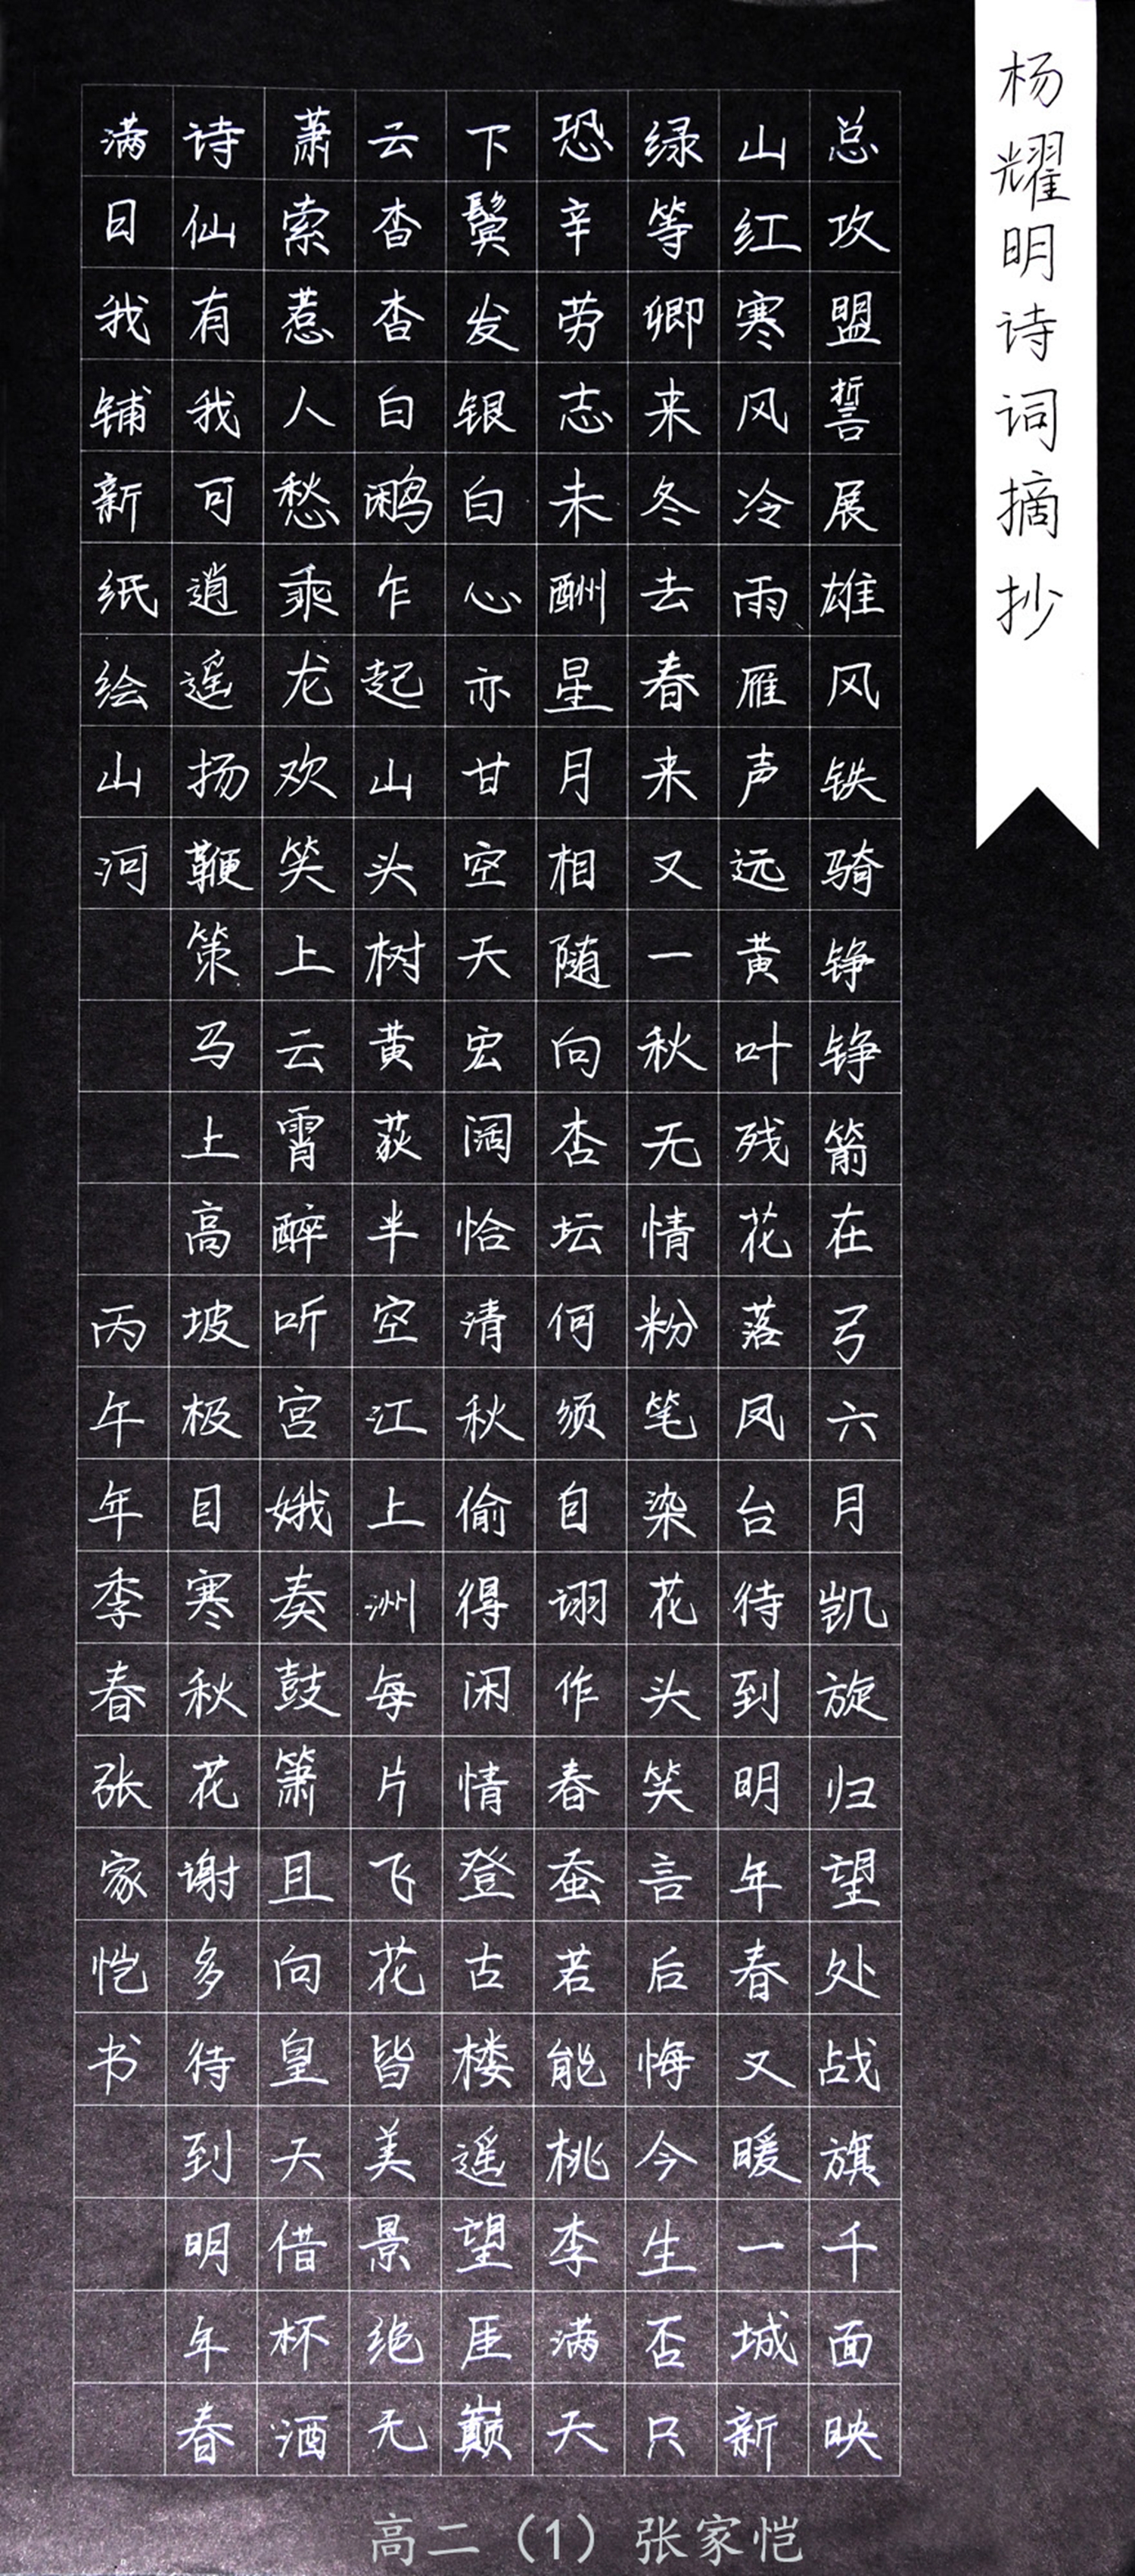 杨耀明诗词摘抄
总攻盟誓展雄风铁骑铮铮箭在弓六月凯旋归望处战旗千面映
山红寒风冷雨雁声远黄叶残花落凤台待到明年春又暖一城新
绿等卿来冬去春来又一秋无情粉笔染花头笑言后悔今生否只
恐辛劳志未酬星月相随向杏坛何须自诩作春蚕若能桃李满天
下鬓发银白心亦甘空天宏阔恰清秋偷得闲情登古楼遥望厓巅
云杳杳白鹇乍起山头树黄荻半空江上洲每片飞花皆美景绝无
萧索惹人愁乘龙欢笑上云霄醉听宫娥奏鼓箫且向皇天借杯酒
诗仙有我可逍遥扬鞭策马上高坡极目寒秋花谢多待到明年春
满目我铺新纸绘山河 丙午年季春张家恺书
高二（1）张家恺